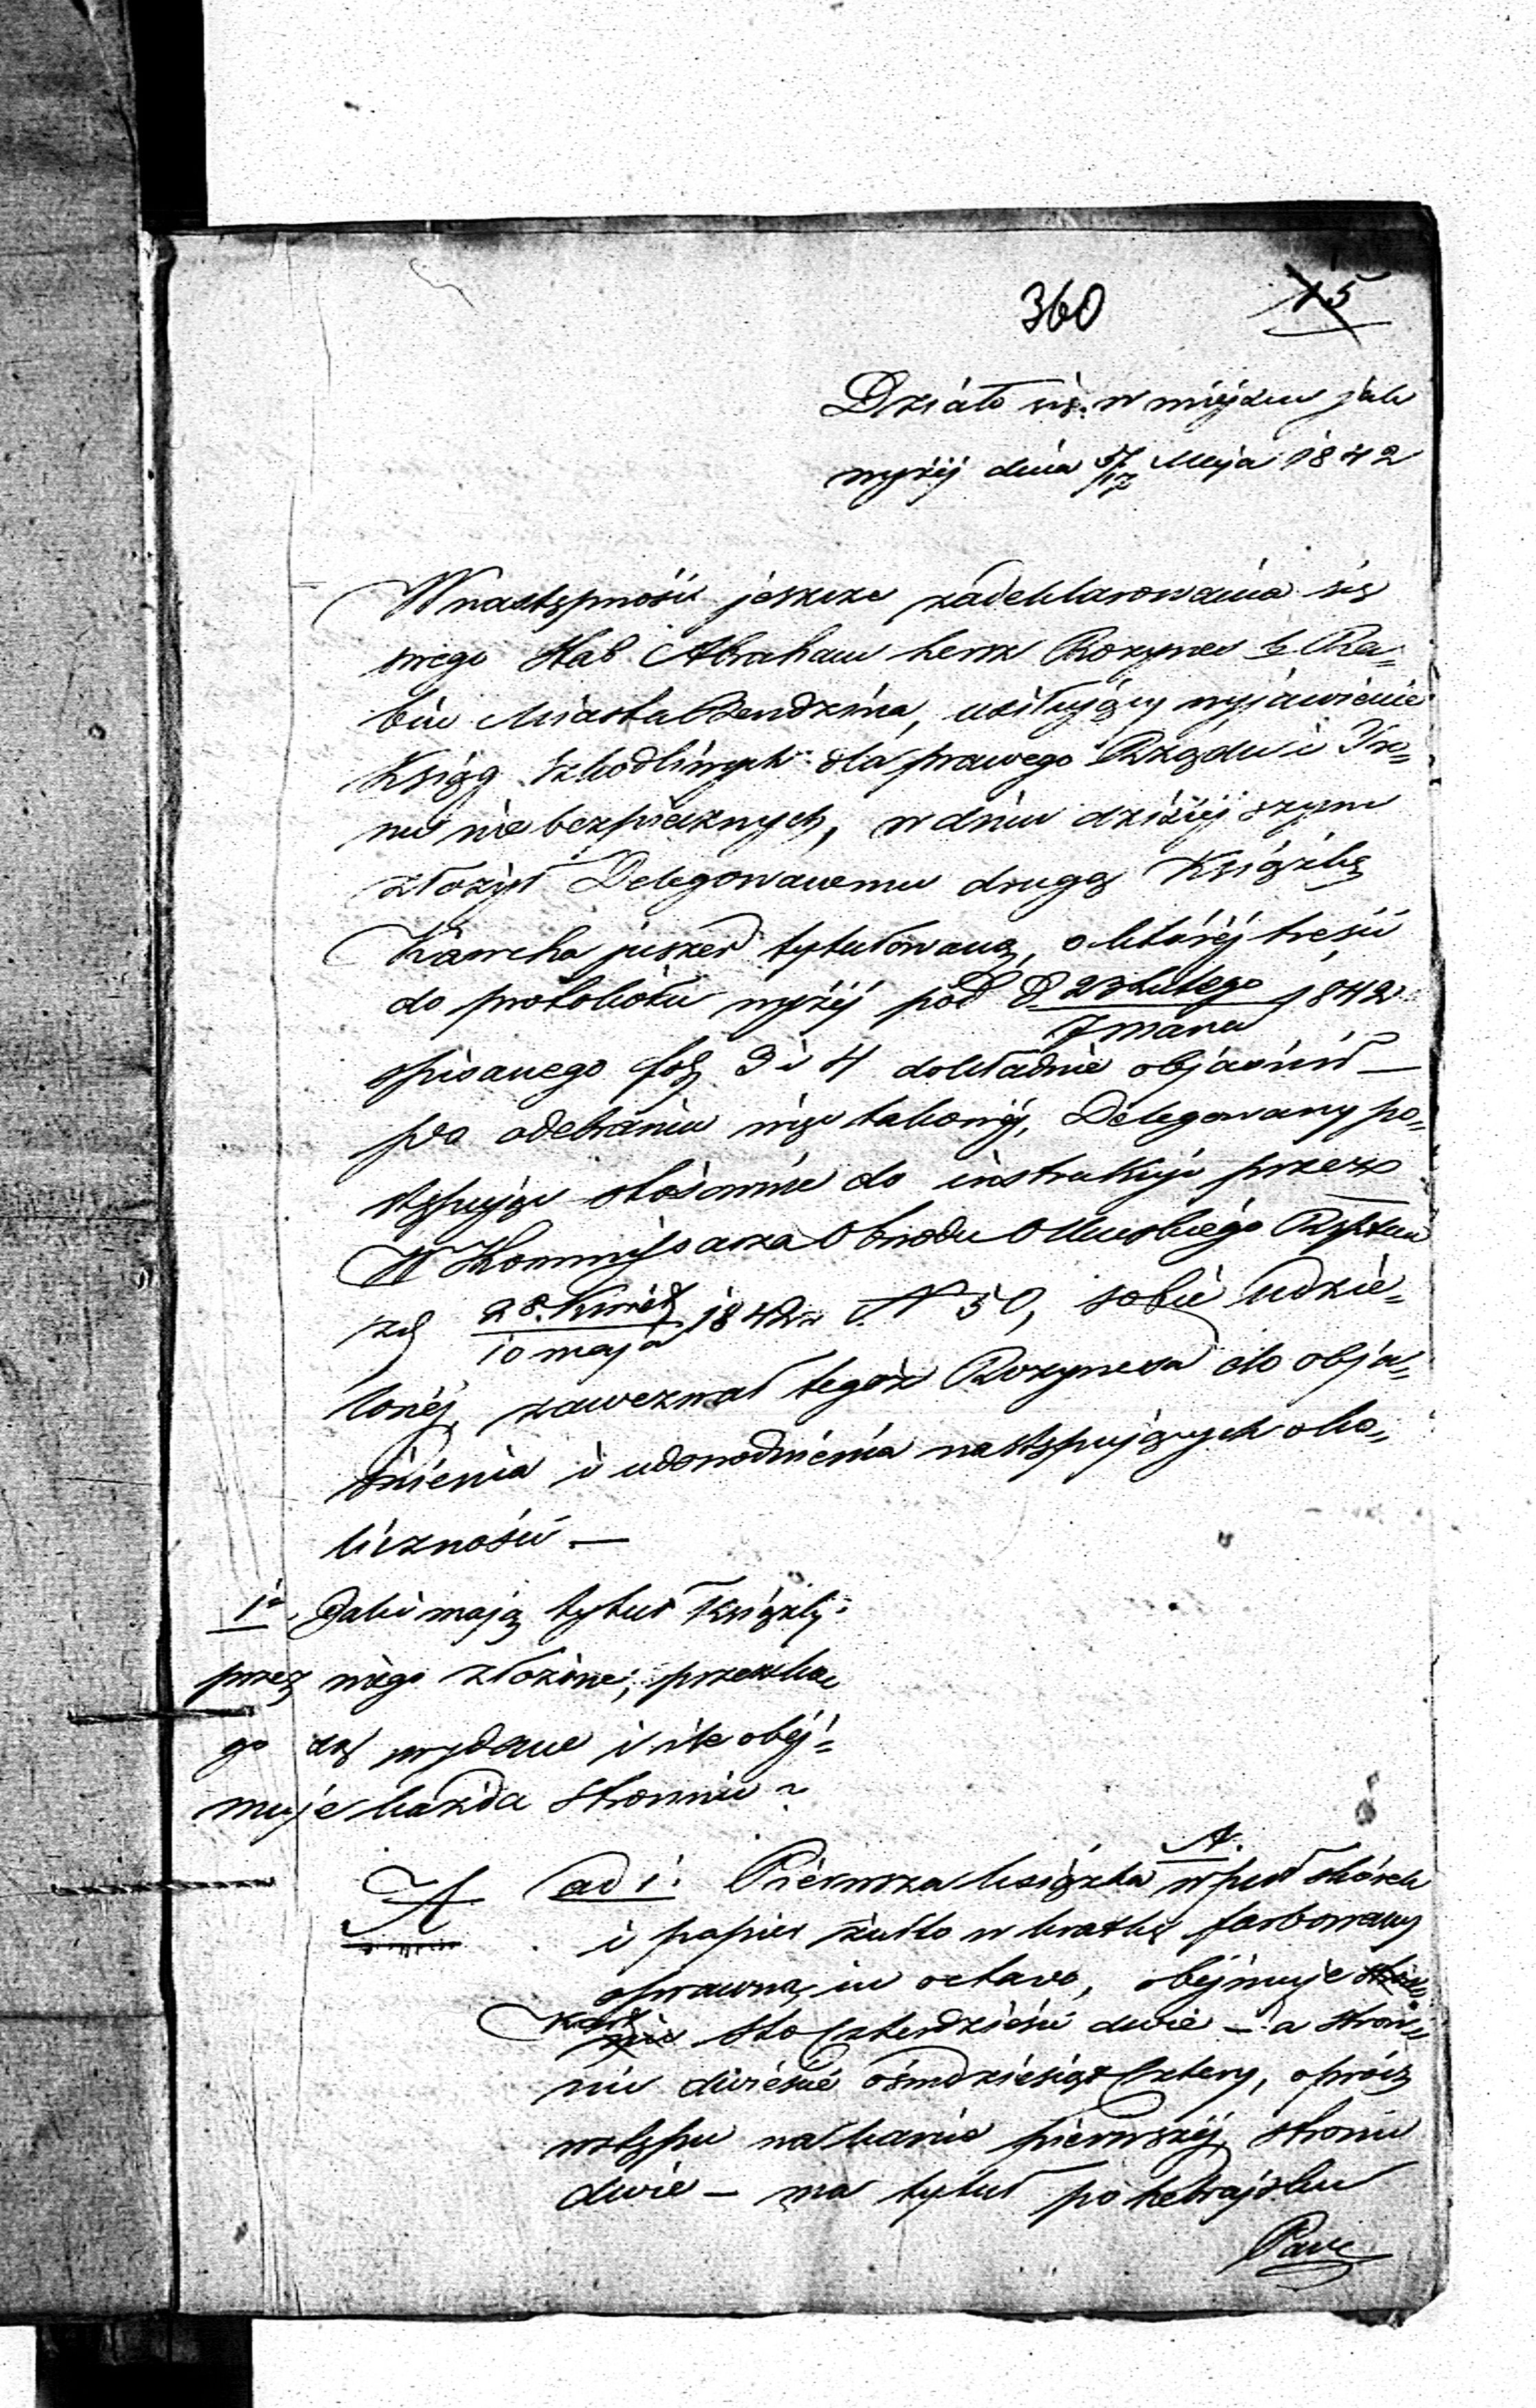 360
15
Działo się w miejscu jak
wyżéj dnia 5/17 Maja 1842
W następności jeszcze zadeklarowania się
swego Abraham Hersz Rozynes b Ra„
bin Miasta Bendzina, usiłujący wyjawienie
Ksiąg szkodliwych dla prawego Rządu i Tro„
nu niebezpiecznych, w dniu dzisiéjszym
złożył Delegowanemu drugą Książkę
tytułowaną, o któréj treści
do protokółu wyżéj pod d 23 Lutego / 7 marca 1842
spisanego fol 3 i 4 dokładnie objaśnił —
po odebraniu więc takowéj, Delegowany po„
stępując stosownie do instrukcyi przez
W Kommissarza Obwodu Olkuskiego
z d 28. Kwiet / 10 maja 1842 r N 50, sobie udzie„
lonéj, zawezwał tegoż Rozynesa do obja„
śnienia i udowodnienia następujących oko„
liczności —
1o. Jaki mają tytuł Książki
przez niego złożone; przez ko„
go są wydane i ile obéj„
muje każda stronnic?
A.
A ad 1. Pierwsza książka w puł skórek
i papier żułto w kratkę farbowany
oprawna, in octavo, obéjmuje stron„
kart
nic sto czterdzieści dwie — a stron„
nic dwieście ośmdziesiąt cztery, oprócz
wstępu na karcie pierwszéj, stronic
dwie — ma tytuł po hebrajsku